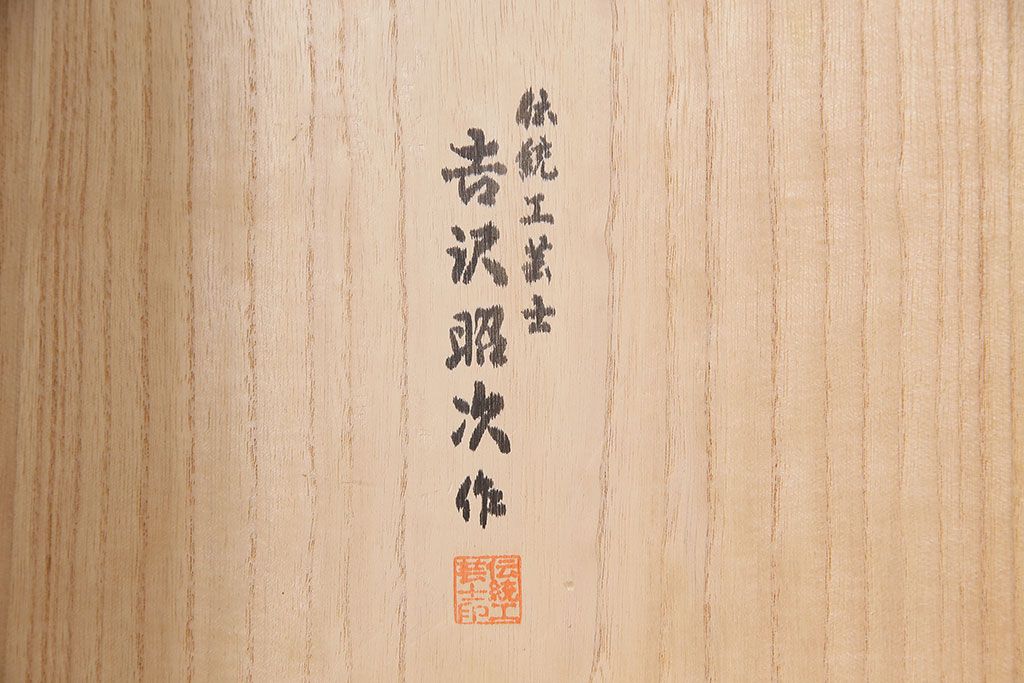 伝統工芸士
吉沢昭次作
伝統工
芸士印